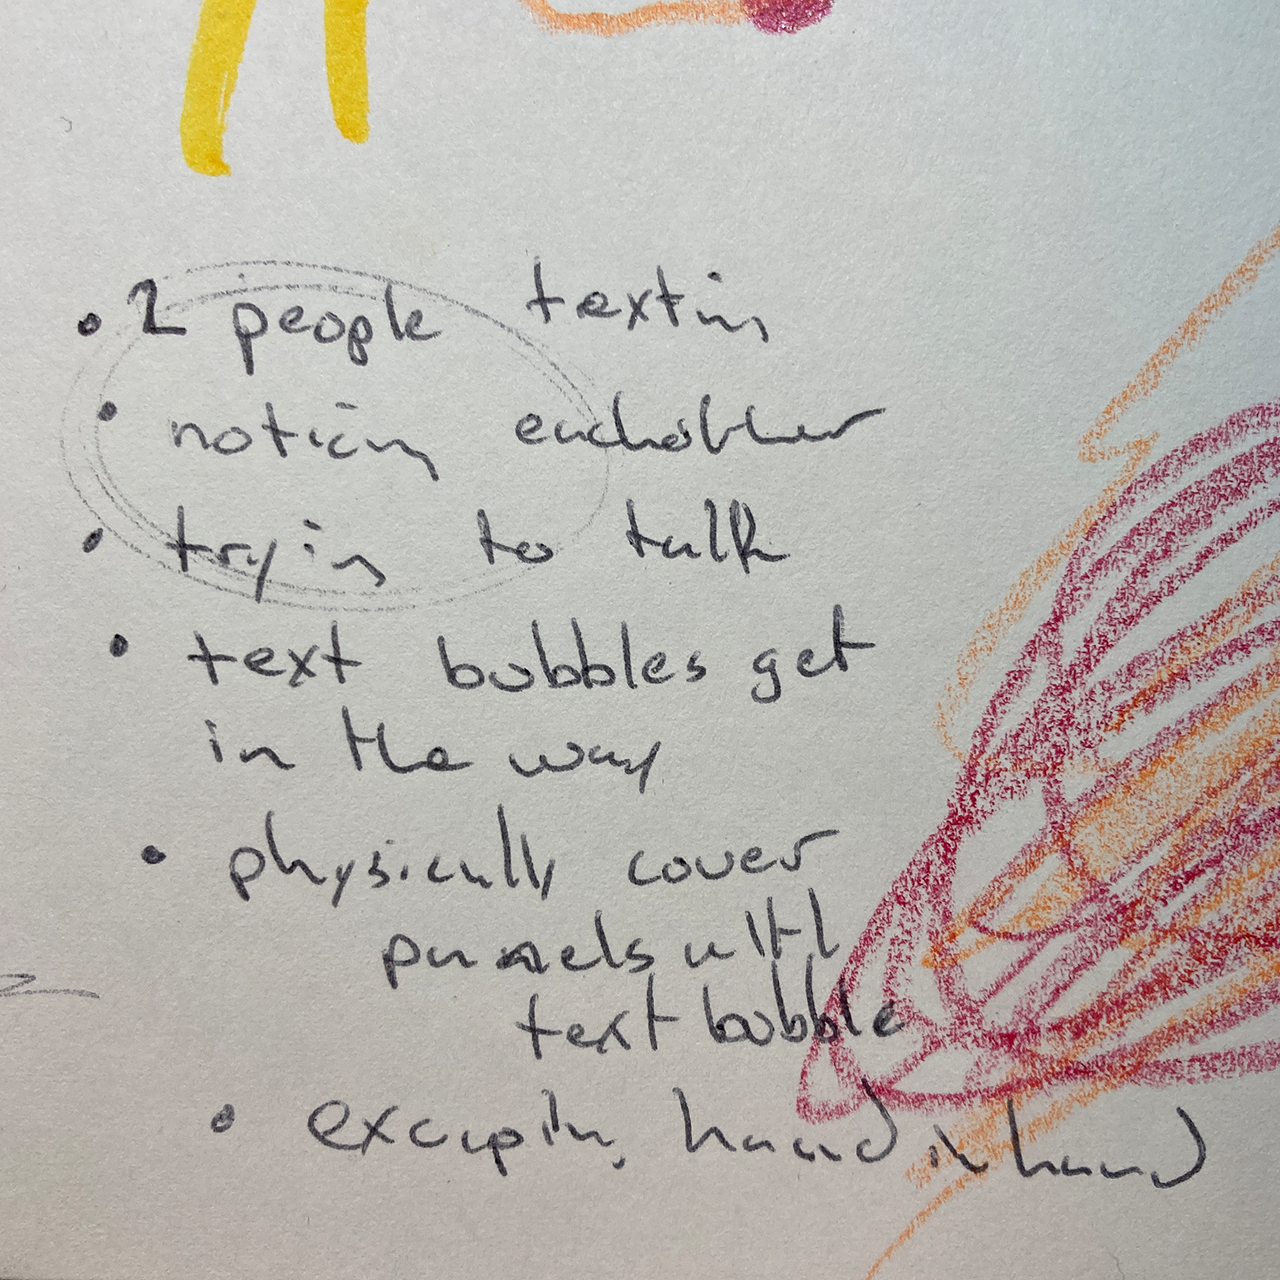 • 2 people texting
• noticing eachother
• trying to talk
• text bubbles get
in the way
• physically cover
pannels with
text bubble
• excaping hand in hand